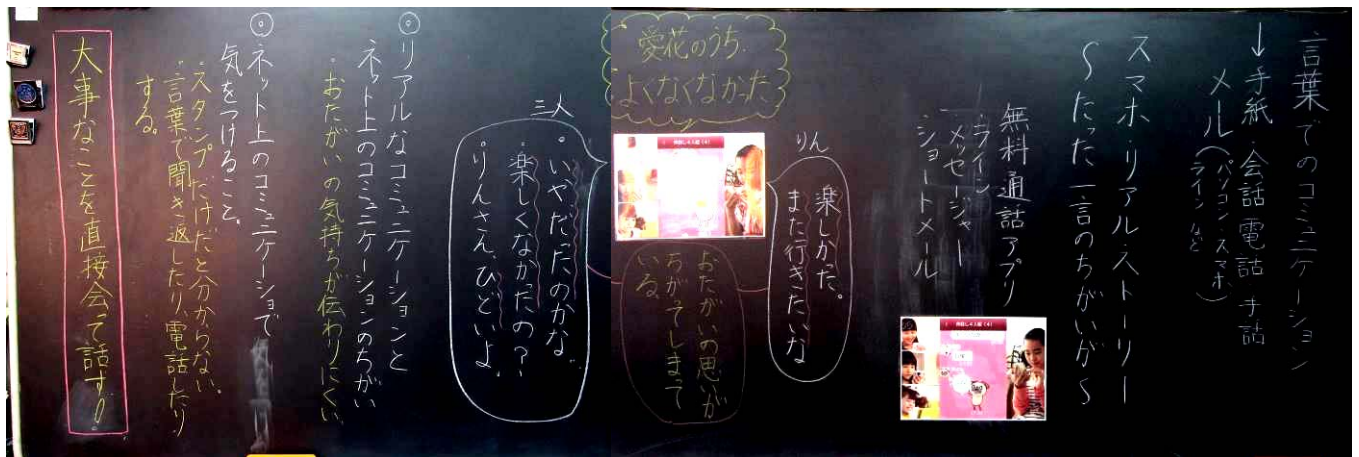 言葉でのコミュニケーション
↓手紙・会話 電話 手話
メール(パソコン・スマホ
ラインなど)
スマホ・リアル・ストーリー
～たった一言のちがいが～
無料通話アプリ
・ライン
・メッセージャー
・ショートメール
りん
楽しかった。
また行きたいな
愛花のうち.
よくなくなかった
おたがいの思いが
ちがってしまって
いる。
三人
・いやだったのかな。
・楽しくなかったの?
・りんさん、ひどいよ
◎リアルなコミュニケーションと
ネット上のコミュニケーションのちがい
・おたがいの気持ちが伝わりにくい
◎ネット上のコミュニケーショで
気をつけること。
・スタンプだけだと分からない。
・言葉で聞き返したり、電話したり
する。
大事なことを直接会って話す!